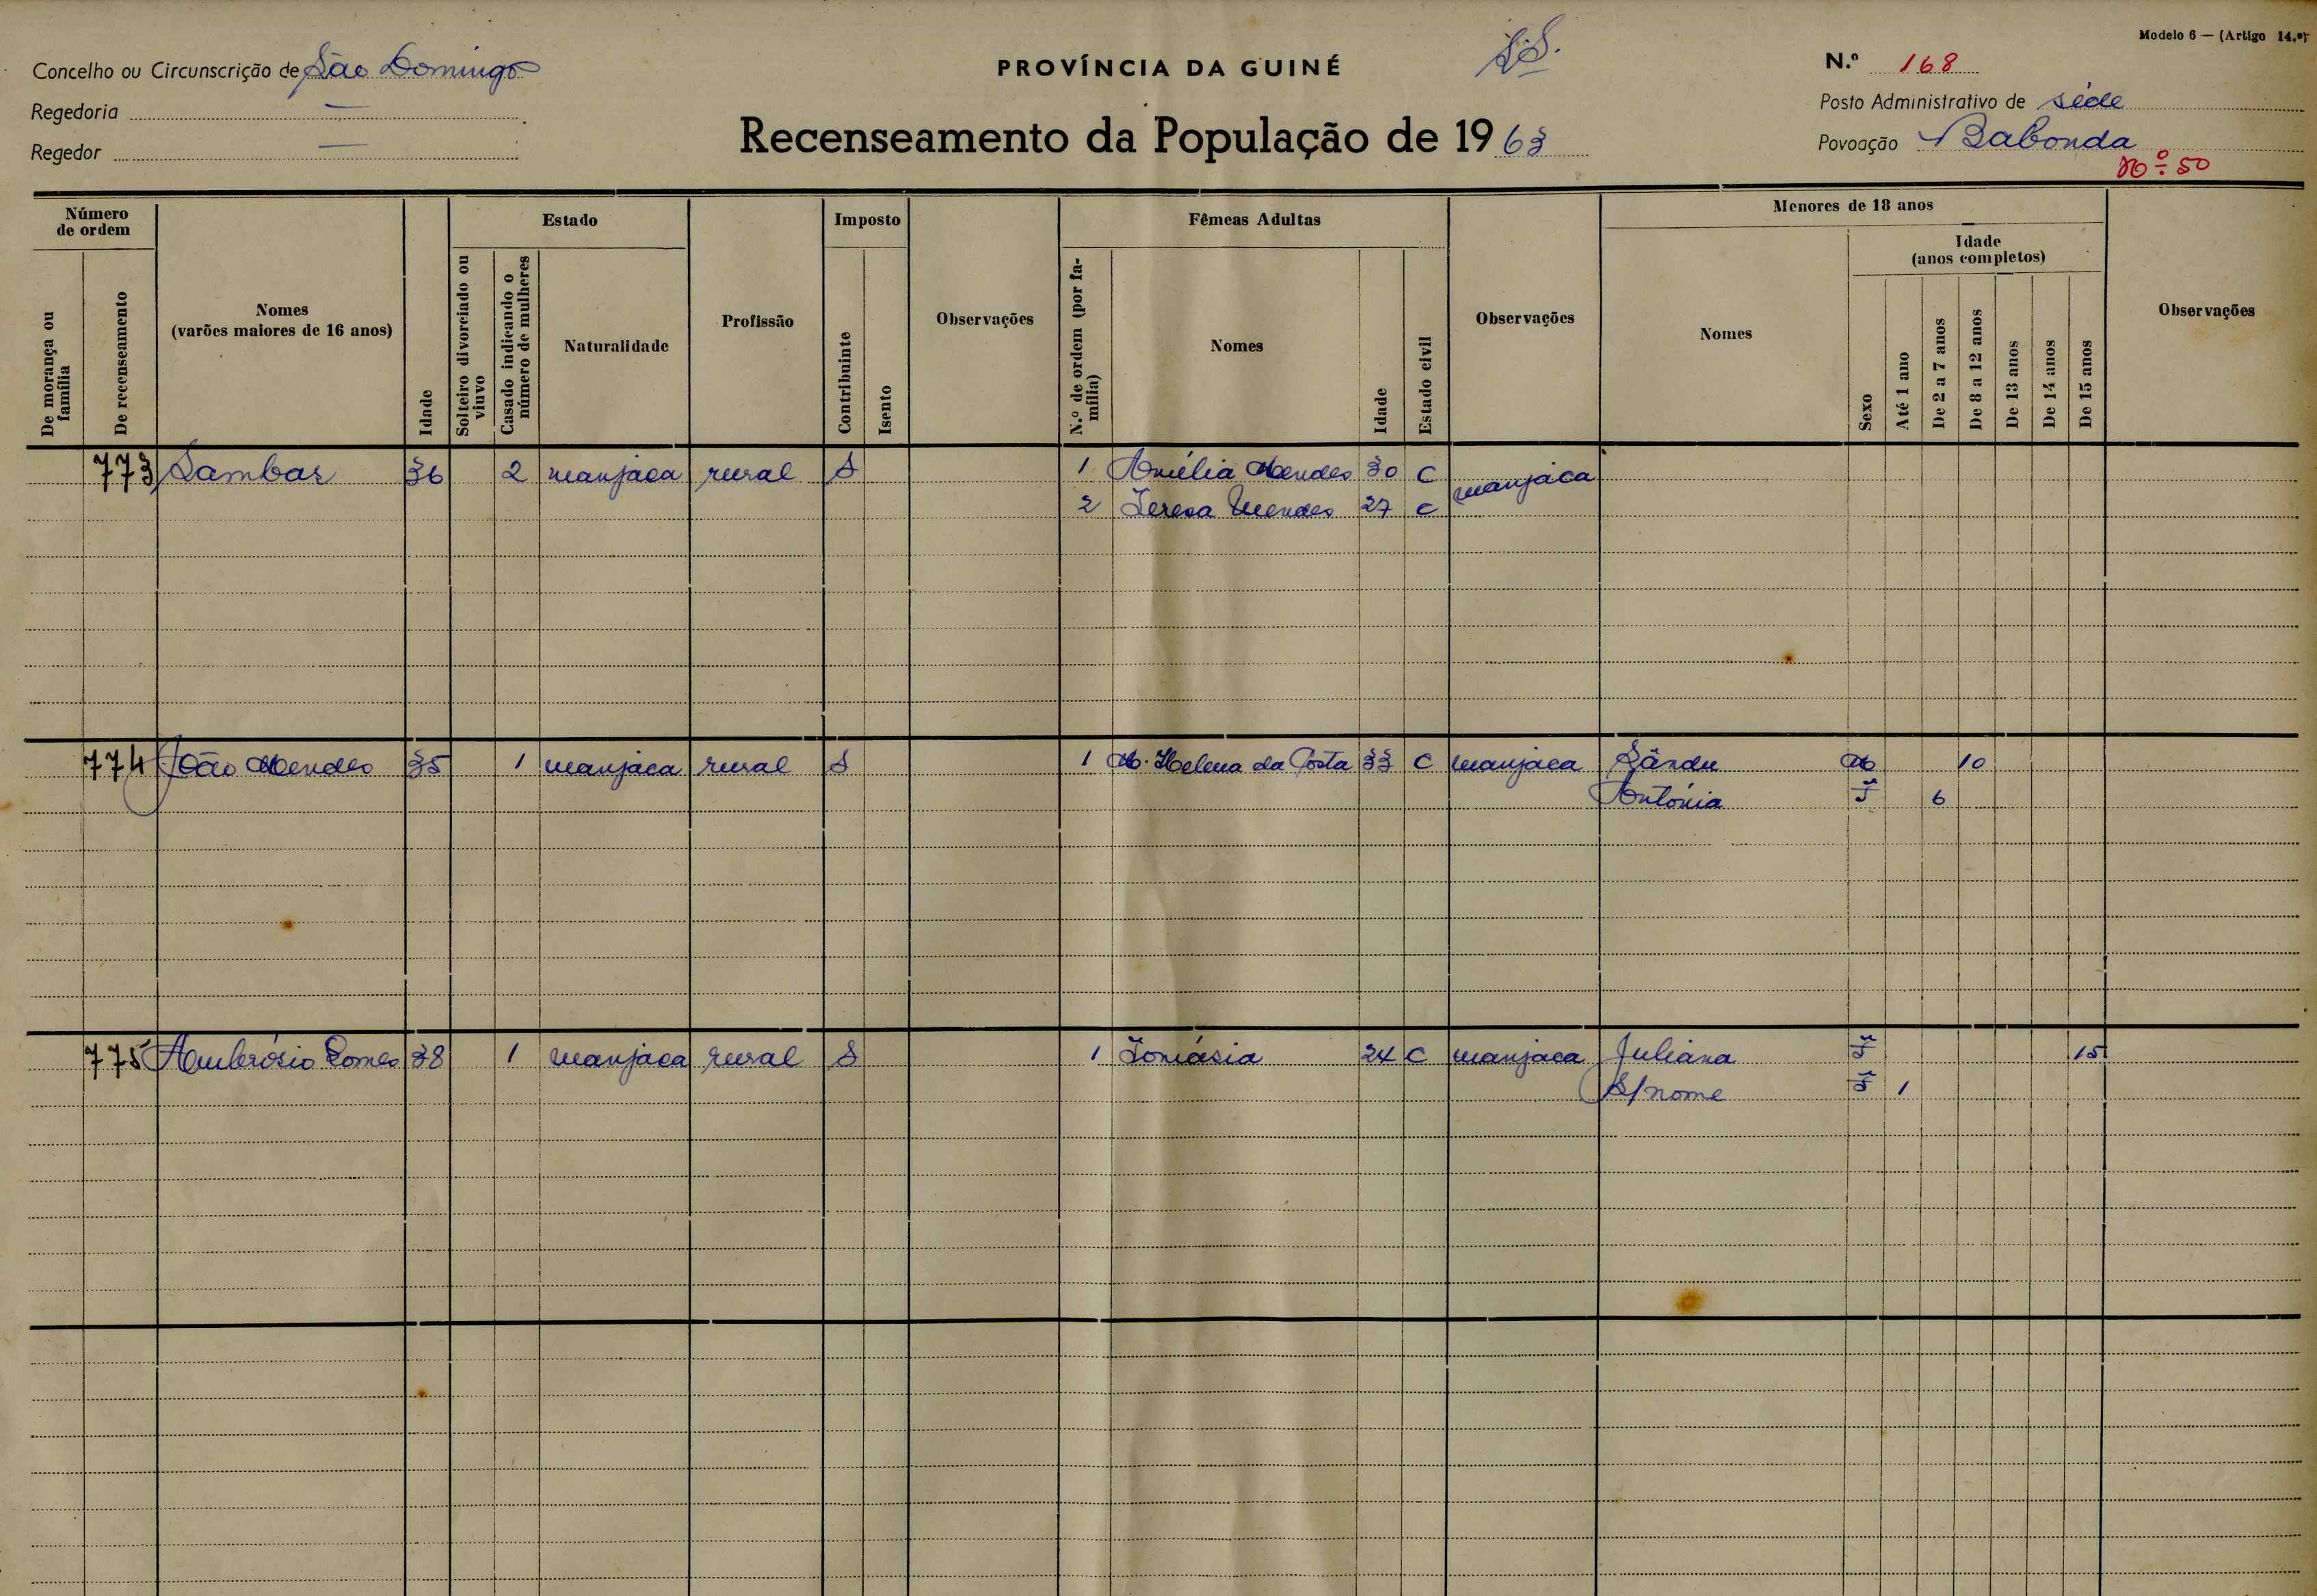 Modelo 6 — (Artigo 14.º)
Concelho ou Circunscrição de São Domingos
PROVÍNCIA DA GUINÉ
N.º 168
Regedoria —
Posto Administrativo de séde
Regedor —
Recenseamento da População de 1963
Povoação Babonda
Nº 50
Número de ordem
De morança ou família
De recenseamento
Nomes
(varões maiores de 16 anos)
Idade
Estado
Solteiro divorciado ou viuvo
Casado indicando o número de mulheres
Naturalidade
Profissão
Imposto
Contribuinte
Isento
Observações
Fêmeas Adultas
N.º de ordem (por família)
Nomes
Idade
Estado civil
Observações
Menores de 18 anos
Nomes
Idade
(anos completos)
Sexo
Até 1 ano
De 2 a 7 anos
De 8 a 12 anos
De 13 anos
De 14 anos
De 15 anos
Observações
773 Sambas 36 2 manjaca rural S 1 Amélia Mendes 30 C manjaca
2 Teresa Mendes 27 c
774 João Mendes 35 1 manjaca rural S 1 M. Helena da Costa 33 C manjaca Sãndu M 10
Antónia F 6
775 Ambrósio Gomes 38 1 manjaca rural S 1 Tomásia 24 C manjaca Juliana F 15
S/nome F 1